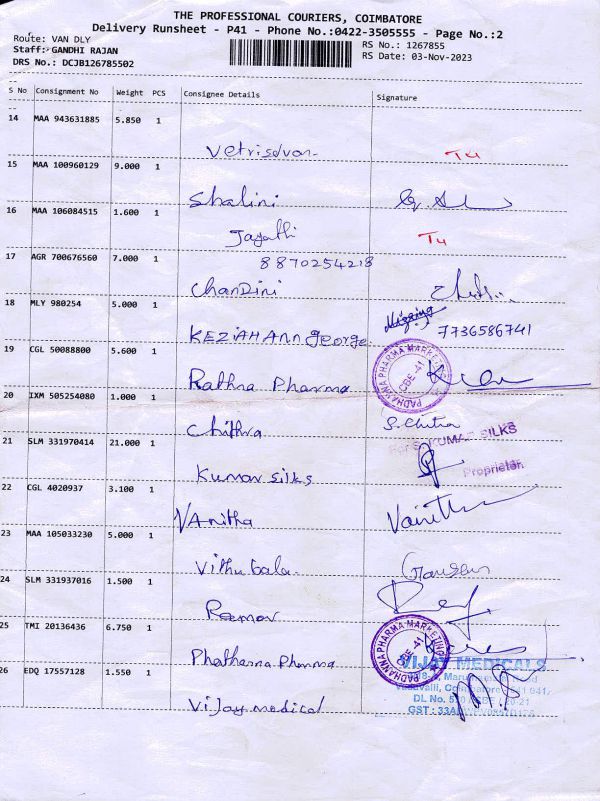 THE PROFESSIONAL COURIERS, COIMBATORE
Delivery Runsheet - P41 - Phone No.:0422-3505555 - Page No.:2
Route: VAN DLY
RS No.: 1267855
Staff: GANDHI RAJAN
RS Date: 03-Nov-2023
DRS No.: DCJB126785502
S No Consignment No Weight PCS Consignee Details Signature
14 MAA 943631885 5.850 1
Vetriselvan Tu
15 MAA 100960129 9.000 1
Shalini
16 MAA 106084515 1.600 1
Jayathi Tu
17 AGR 700676560 7.000 1
8870254218
Chandini
18 MLY 980254 5.000 1
Missing
KEZIAH Ann george 7736586741
19 CGL 50088800 5.600 1
PADHANNA PHARMA MARKETING
CBE-41
Rathna Pharma
20 IXM 505254080 1.000 1
Chithra S. Chitra
21 SLM 331970414 21.000 1
For S. KUMAR SILKS
Kumar silks Proprietor
22 CGL 4020937 3.100 1
VAnitha Vanitha
23 MAA 105033230 5.000 1
Vithu bala
24 SLM 331937016 1.500 1
Raman
25 TMI 20136436 6.750 1
PADHANNA PHARMA MARKETING
CBE-41
Phathanna Pharma
26 EDQ 17557128 1.550 1
VIJAY MEDICALS
Vadavalli, Coimbatore 641 041
DL No.
GST : 33A
Vijay medical